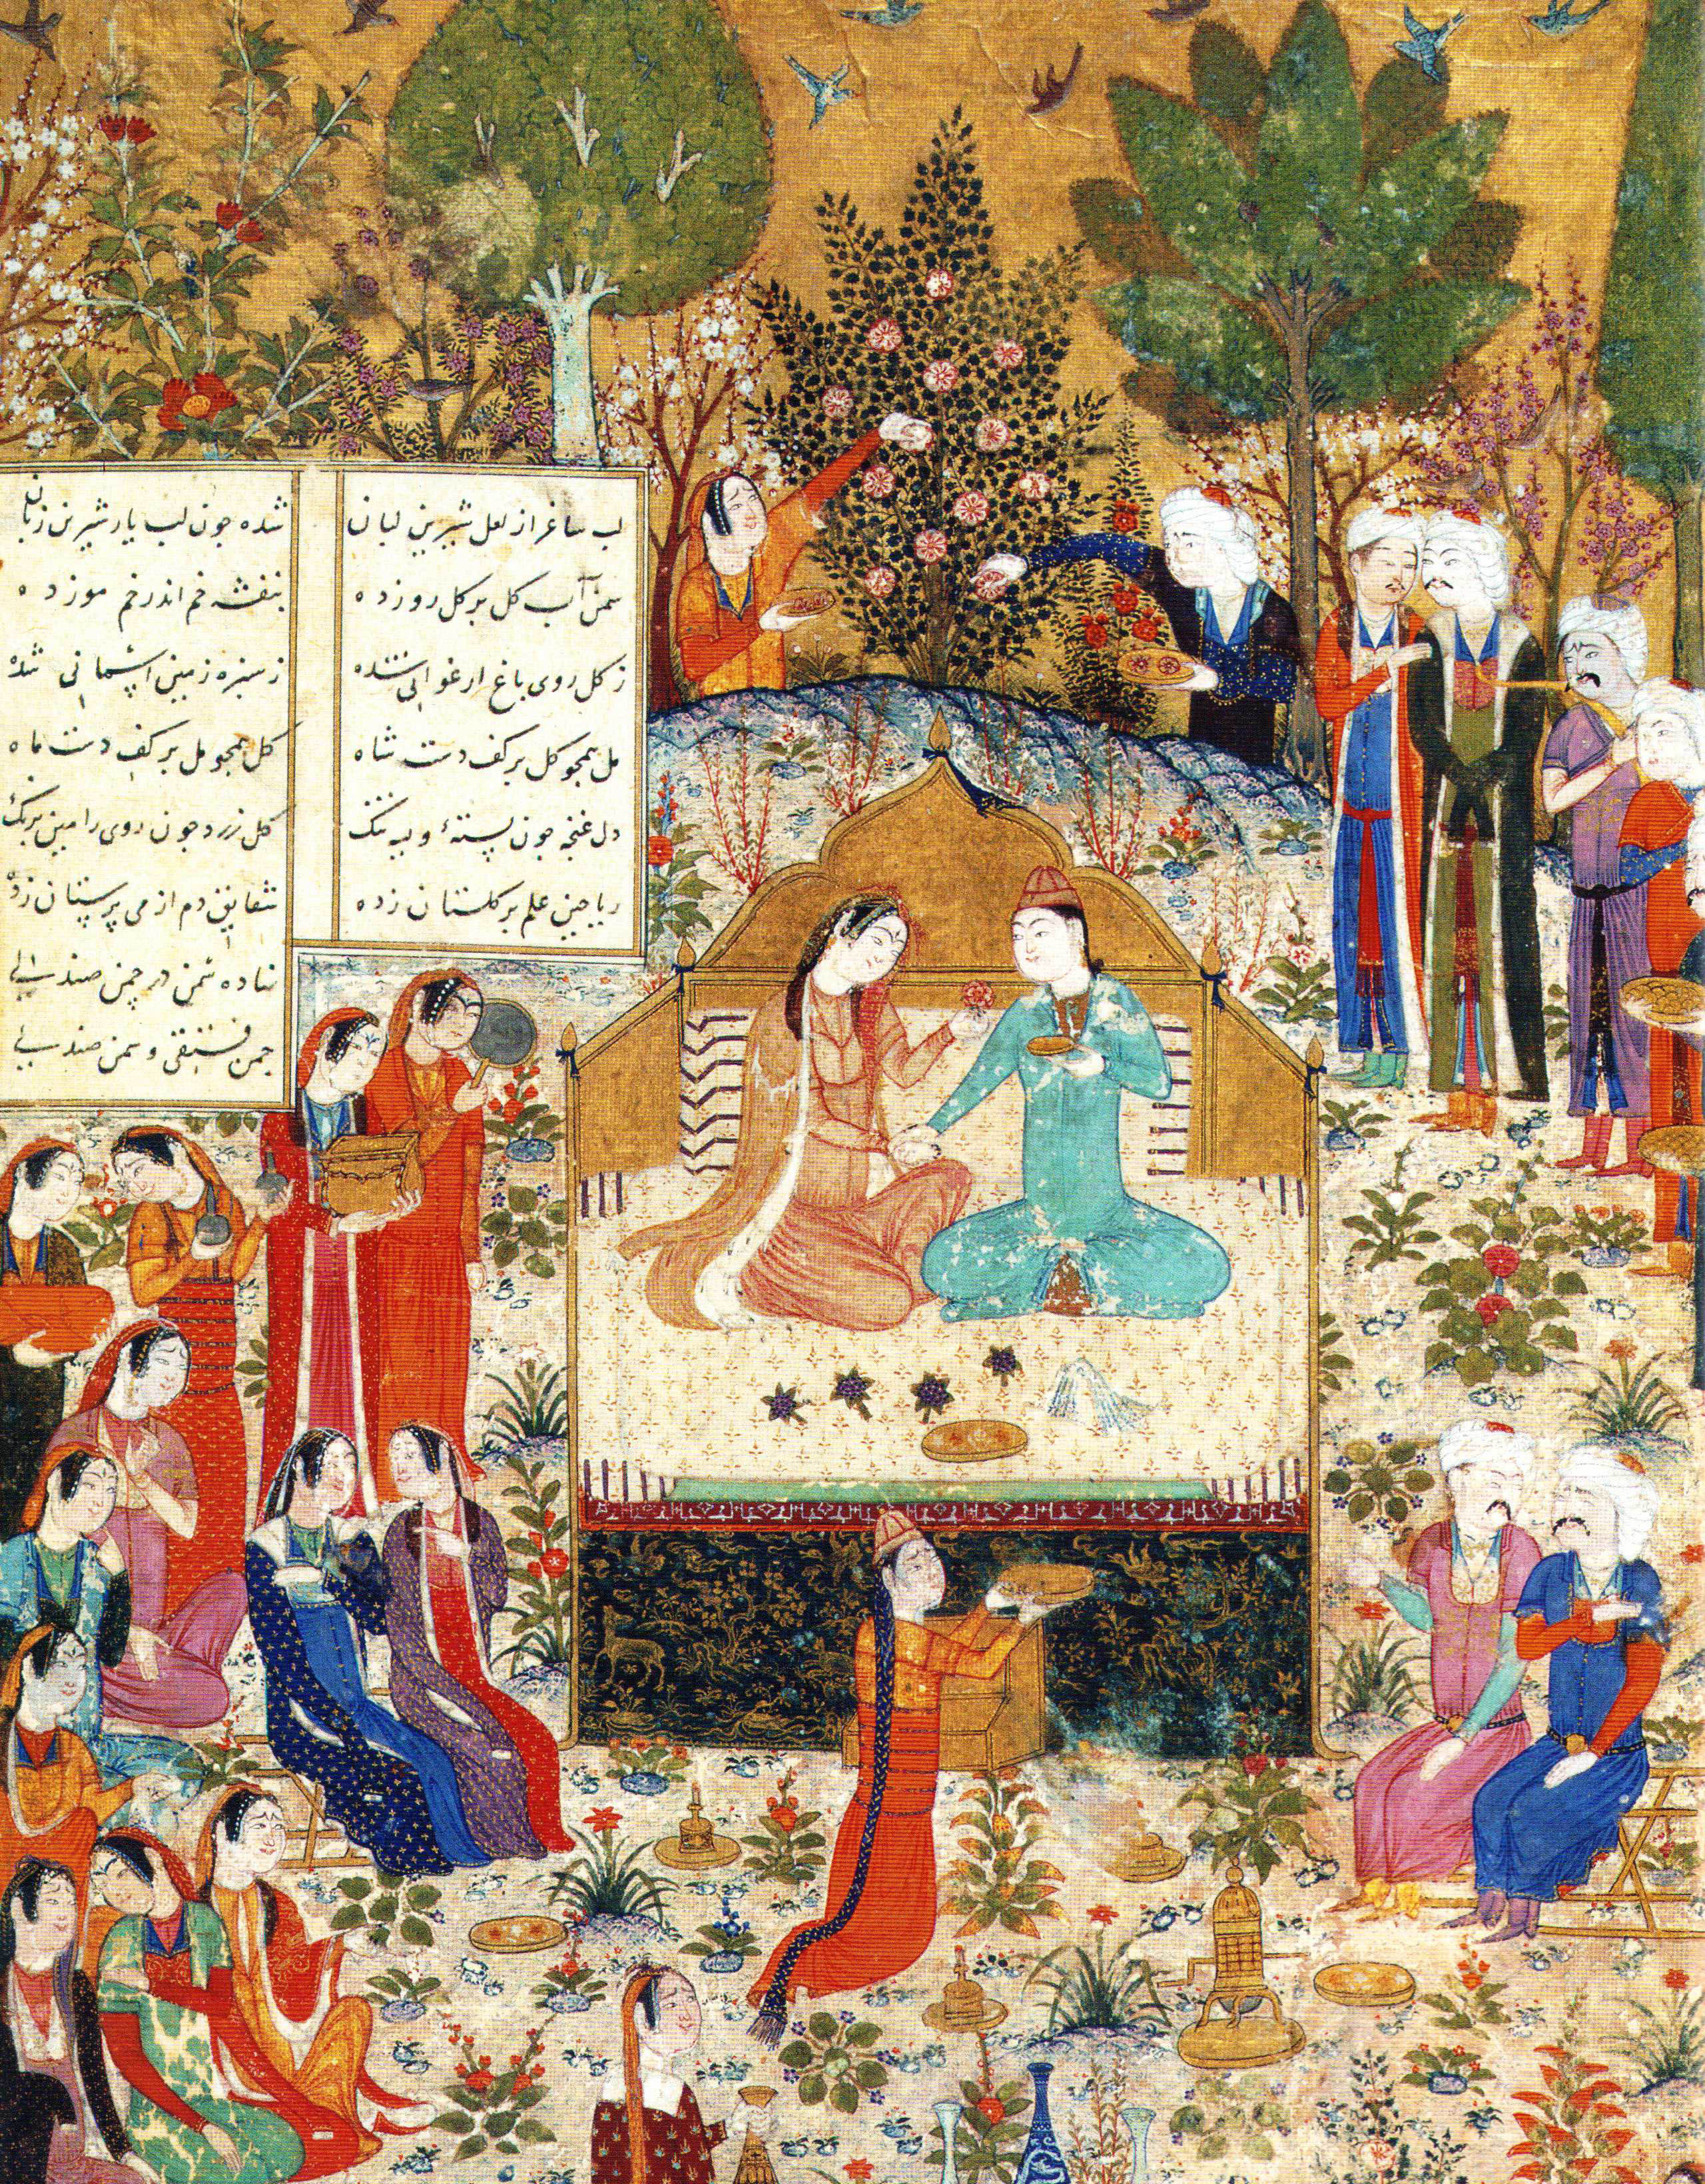 لب ساغر از لعل شیرین لبان شده جون لب یار شیرین زبان
سمن آب کل بر کل رو زده بنفشه خم اندر خم موزده
ز کل روی باغ ارغوانی شده ز سبزه زمین آسمانی شده
مل همجو کل بر کف دست شاه کل همجو مل بر کف دست ماه
دل غنجه جون پستهٔ تنک کل زرد جون روی رامین برنک
ریاحین علم بر کلستان زده شقایق دم از می پرستان زده
نهاده سمن در چمن صندلی
جمن فستقی و سمن صندلی